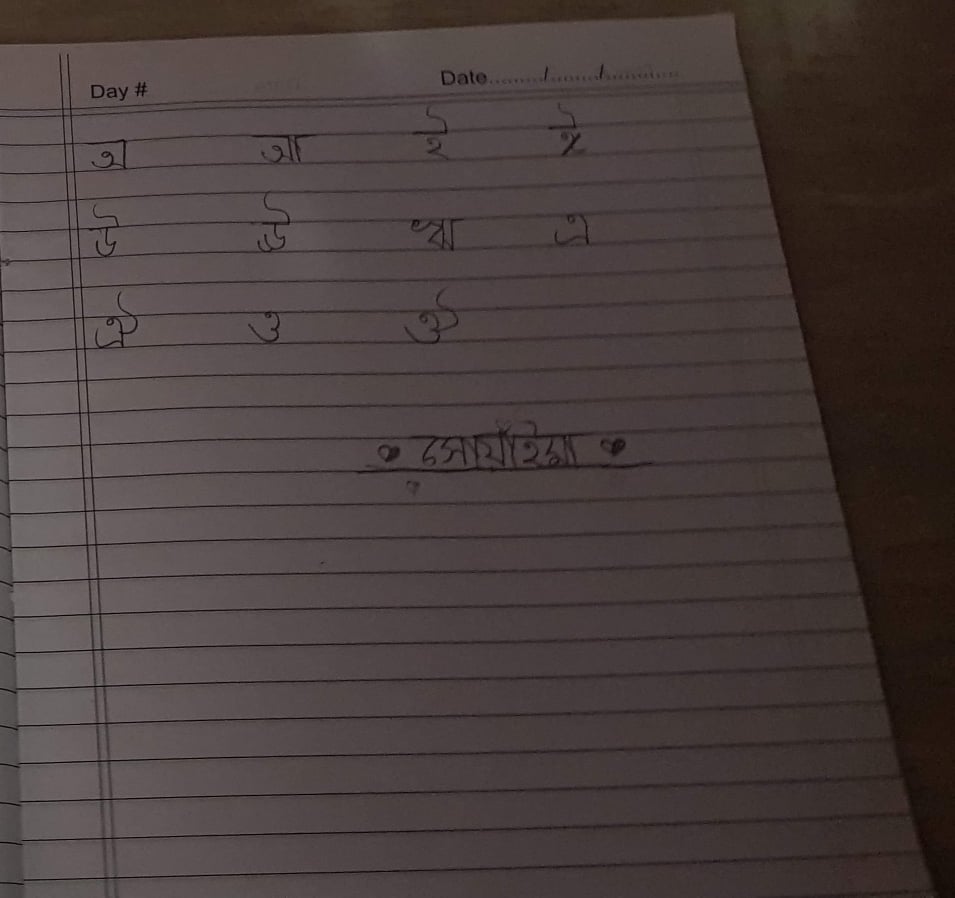 Day # Date........./........./.............
অ আ ই ঈ
উ ঊ ঋ এ
ঐ ও ঔ